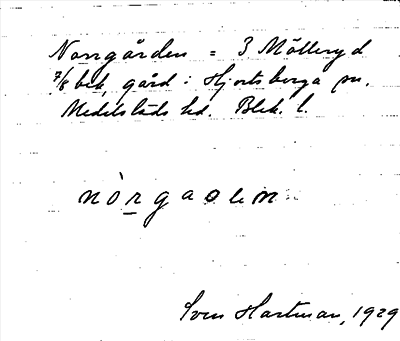 Norrgården = 3 Mölleryd
7/8 bek. gård i Hjortsberga sn.
Medelstads hd. Blek. l.
nòrgaolin
Sven Hartman, 1929